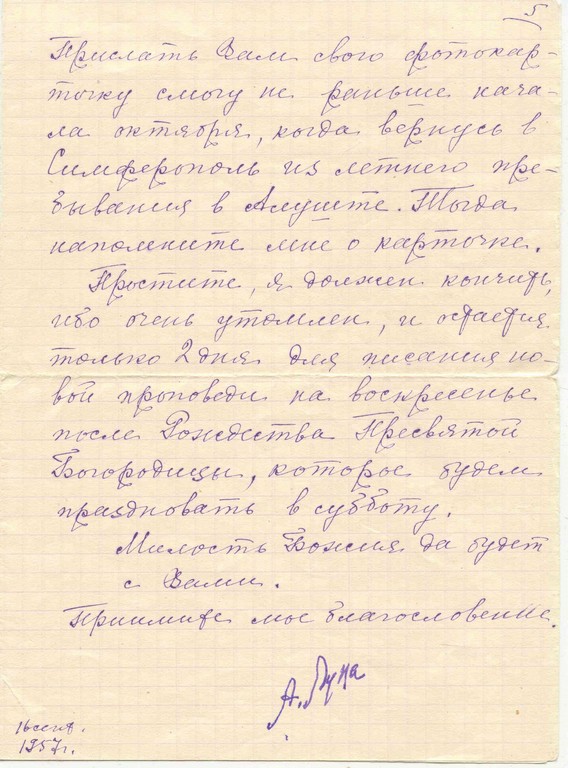 5
Прислать Вам свою фотокар-
точку смогу не раньше нача-
ла октября, когда вернусь в
Симферополь из летнего пре-
бывания в Алуште. Тогда
напомните мне о карточке.
Простите, я должен кончить,
ибо очень утомлен, и остается
только 2 дня для писания но-
вой проповеди на воскресенье
после Рождества Пресвятой
Богородицы, которое будем
праздновать в субботу.
Милость Божия да будет
с Вами.
Приимите мое благословение.
А. Лука
16 сент.
1957 г.